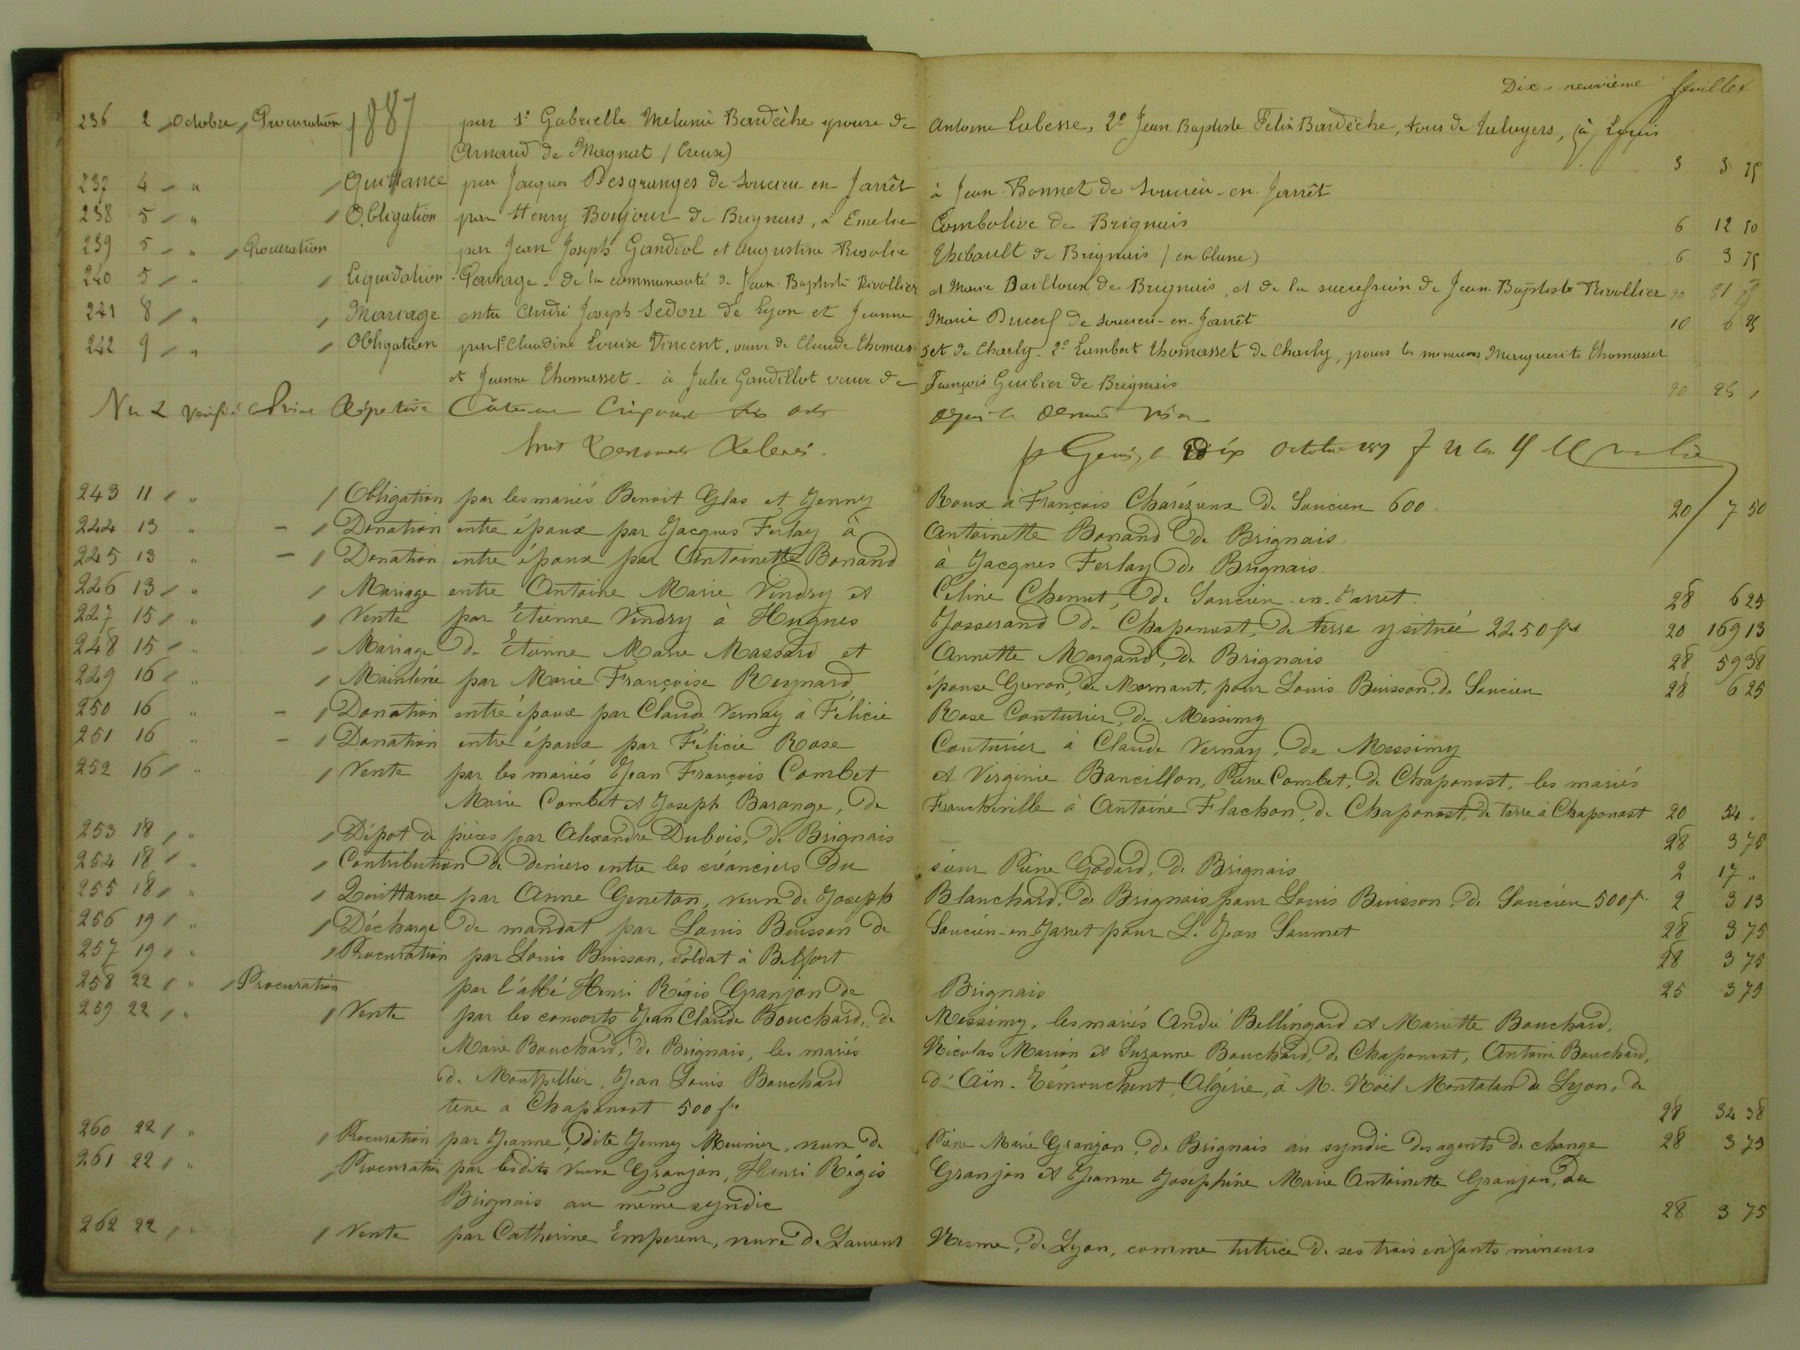 Dix-neuvième feuillet
1887
236 2 Octobre Procuration par 1° Gabrielle Melanie Bardèche épouse de Antoine Labesse, 2° Jean Baptiste Félix Bardèche, tous de Taluyers, à Louis
Arnaud de Magnat (Creuse) 3 3 75
237 4 " Quittance par Jacques Desgranges de Soucieu-en-Jarrêt à Jean Bonnet de Soucieu-en-Jarrêt
238 5 " Obligation par Henry Bonjour de Brignais, à Emelie Combalive de Brignais 6 12 50
239 5 " Procuration par Jean Joseph Gandiol et Augustine Rosalie Thibault de Brignais (en blanc) 6 3 75
240 5 " Liquidation-Partage de la communauté de Jean-Baptiste Rivollier et Marie Bailloux de Brignais, et de la succession de Jean-Baptiste Rivollier
241 8 " Mariage entre André Joseph Sedou de Lyon et Jeanne Marie de Soucieu-en-Jarrêt 10 6 25
242 9 " Obligation par 1° Claudine Louise Vincent, veuve de Claude Thomasset de Charly, 2° Lambert Thomasset de Charly, pour les mineurs Marguerite Thomasset
et Jeanne Thomasset à Julie Gandillot veuve de François Goubier de Brignais
Nu & vérifié Répertoire cinquante six depuis le dernier visa
huit relevés. St Genis, le dix Octobre
243 11 " Obligation par les mariés Benoit Glas et Jenny Roux à François Charézieux de Soucieu 600 20 7 50
244 13 " Donation entre époux par Jacques Ferlay à Antoinette Bonand de Brignais
245 13 " Donation entre époux par Antoinette Bonand à Jacques Ferlay de Brignais
246 13 " Mariage entre Antoine Marie Vindry et Céline Chemet, de Soucieu-en-Jarret 28 6 25
247 15 " Vente par Etienne Vindry à Hugues Josserand de Chaponost, de terre y située 2250 frs 20 169 13
248 15 " Mariage de Etienne Marie Massard et Annette Morgand, de Brignais 28 59 38
249 16 " Mainlevée par Marie Françoise Reynard épouse Guron, de Mornant, pour Louis Buisson, de Soucieu 28 6 25
250 16 " Donation entre époux par Claude Vernay à Félicie Rose Couturier, de Messimy
251 16 " Donation entre époux par Félicie Rose Couturier à Claude Vernay, de Messimy
252 16 " Vente par les mariés Jean François Combet et Virginie Bancillon, Pierre Combet, de Chaponost, les mariés
Marie Combet et Joseph Barange, de Francheville à Antoine Flachon, de Chaponost, de terre à Chaponost 20 54 "
253 18 " Dépot de pièces par Alexandre Dubois, de Brignais 28 3 75
254 18 " Contribution de deniers entre les créanciers du sieur Pierre Godard, de Brignais 2 17 "
255 18 " Quittance par Anne Geneton, veuve de Joseph Blanchard, de Brignais pour Louis Buisson, de Soucieu 500 f. 2 3 13
256 19 " Décharge de mandat par Louis Buisson de Soucieu-en-Jarret pour L. Jean Saumet 28 3 75
257 19 " Procuration par Louis Buisson, soldat à Belfort 28 3 75
258 22 " Procuration par l'abbé Henri Régis Granjon de Brignais 25 3 75
259 22 " Vente par les consorts Jean Claude Bouchard, de Messimy, les mariés André Bellingard et Mariette Bouchard,
Marie Bouchard, de Brignais, les mariés Nicolas Marion et Suzanne Bouchard, de Chaponost, Antoine Bouchard,
de Montpellier, Jean Louis Bouchard d'Aïn-Témouchent, Algérie, à M. Noël Montaland de Lyon, de
terre a Chaponost 500 frs 28 34 38
260 22 " Procuration par Jeanne, dite Jenny Meunier, veuve de Pierre Marie Granjon, de Brignais au syndic des agents de change 28 3 75
261 22 " Procuration par lesdits veuve Granjon, Henri Régis Granjon et Jeanne Joséphine Marie Antoinette Granjon, de
Brignais au même syndic 28 3 75
262 22 " Vente par Catherine Empereur, veuve de Laurent Nesme, de Lyon, comme tutrice de ses trois enfants mineurs